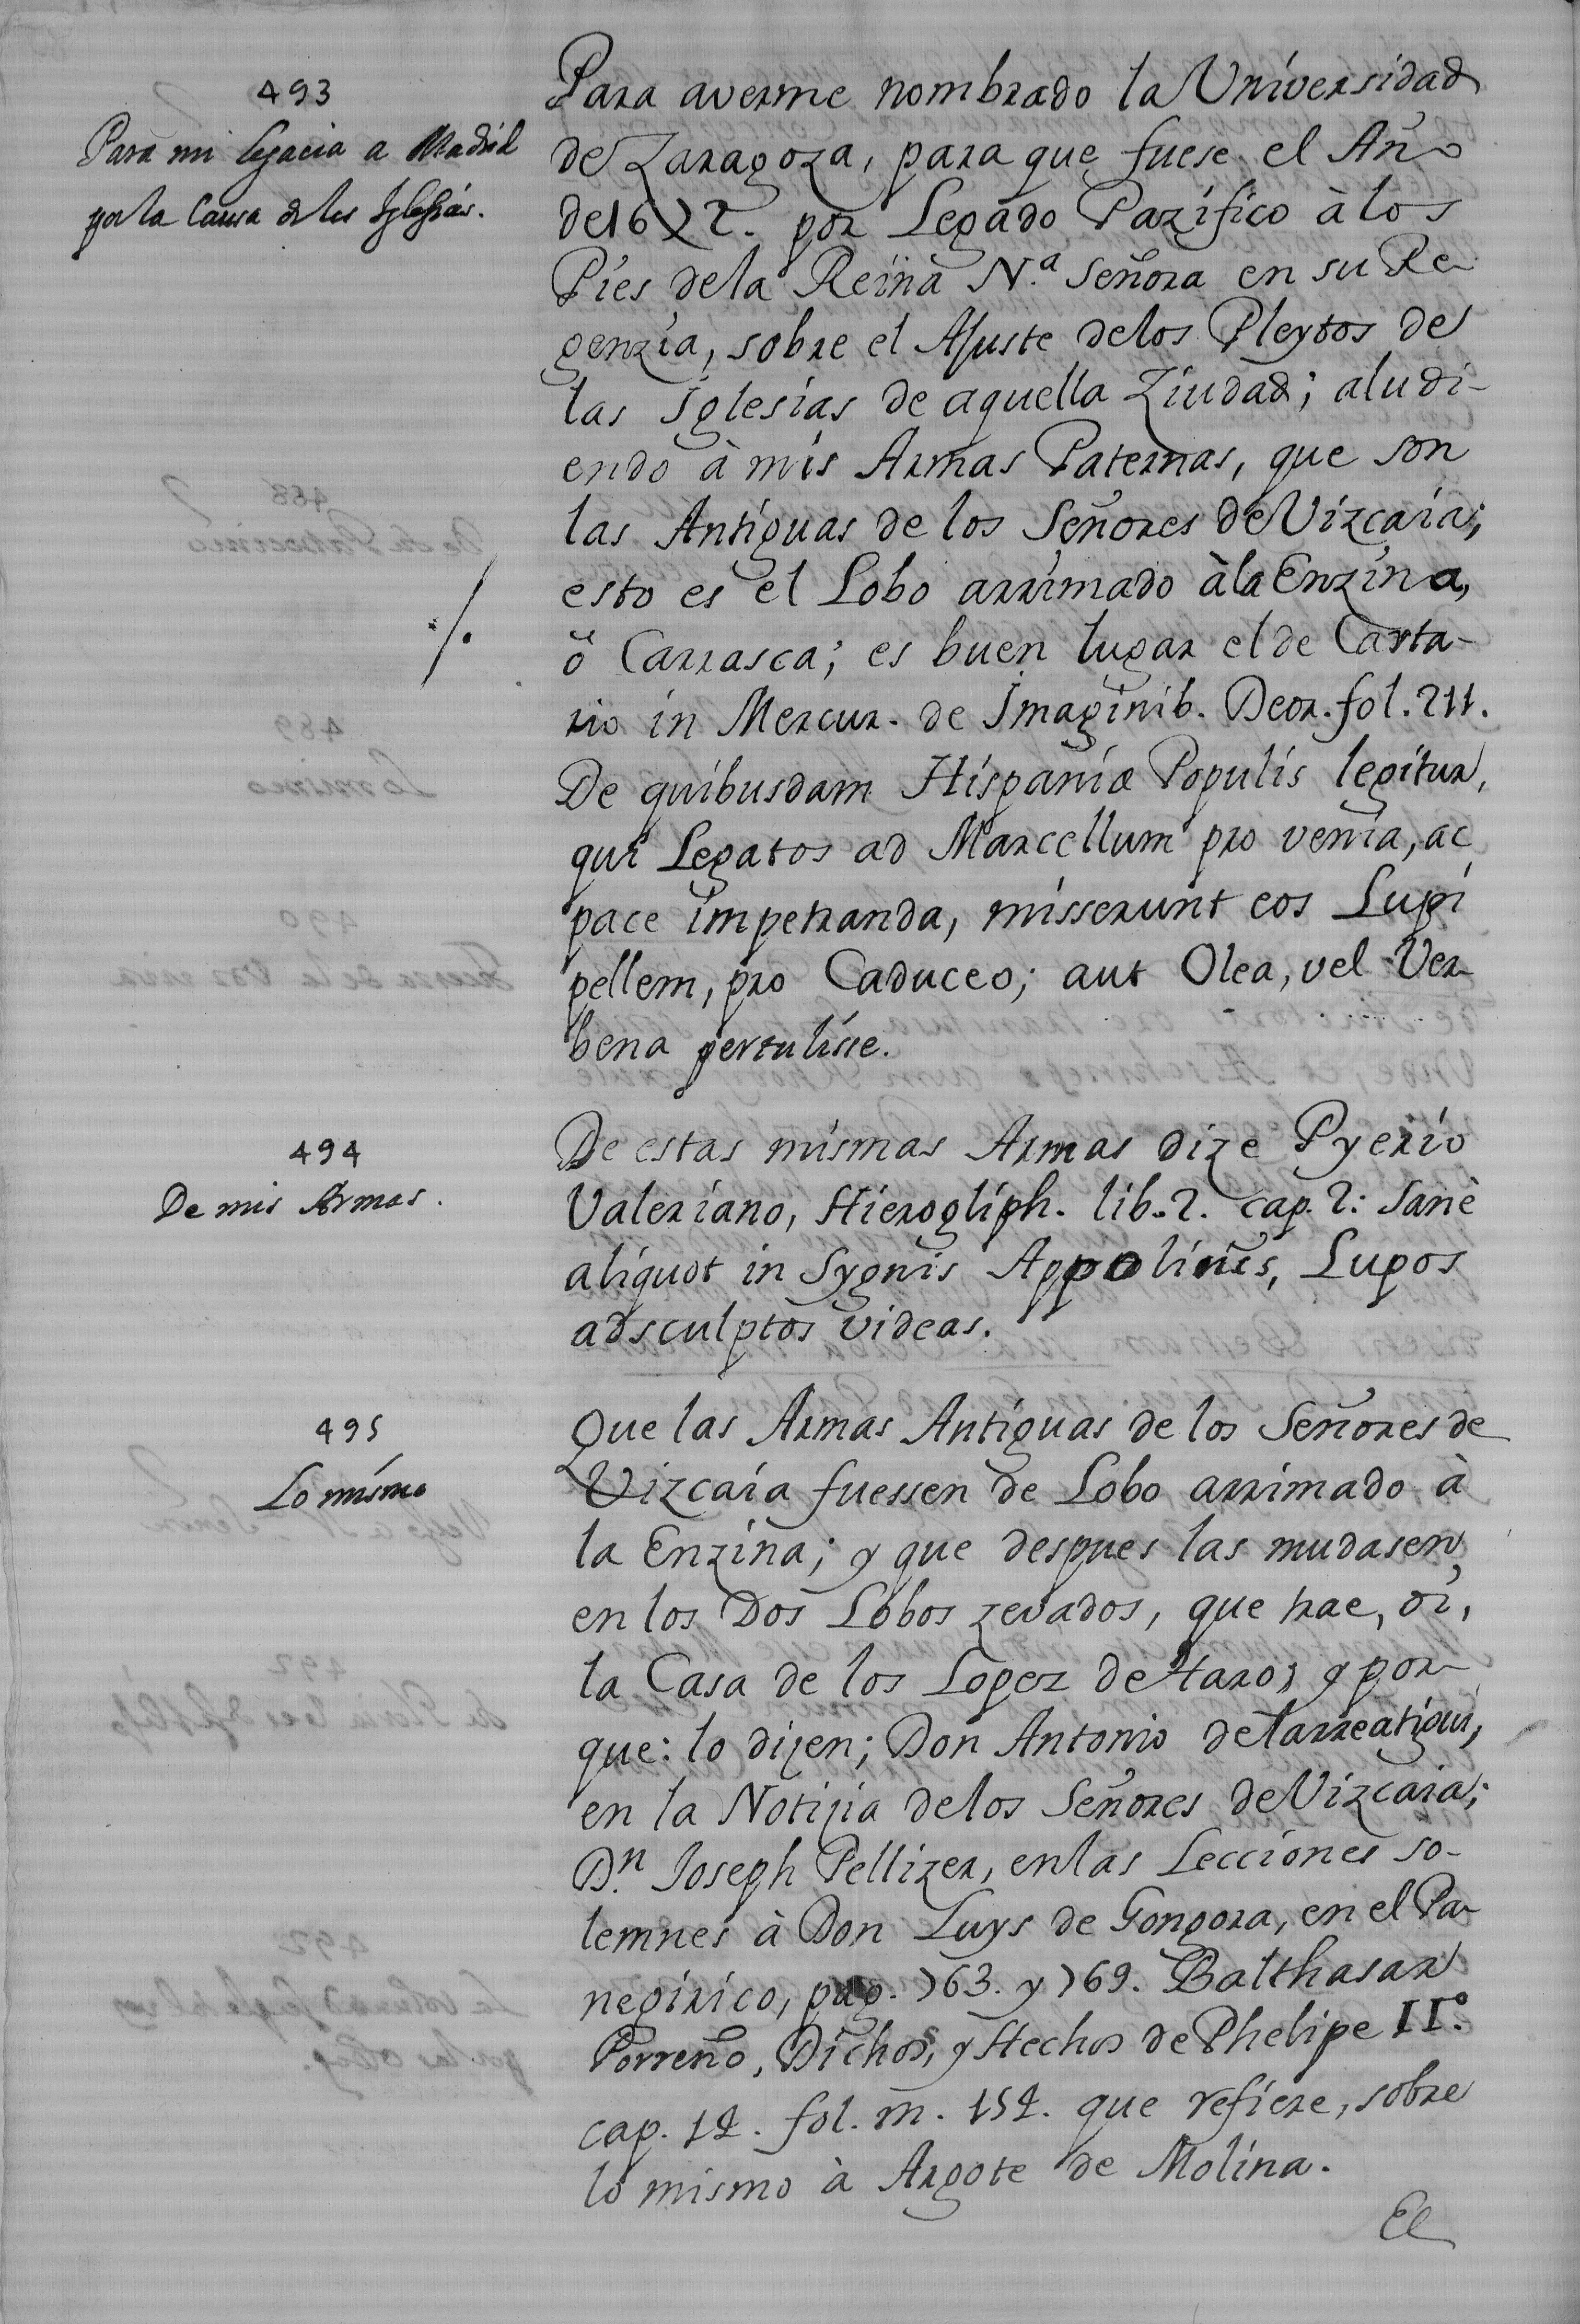 493
Para mi Legacia a Madrid
por la Causa de las Iglesias.
Para averme nombrado la Universidad
de Zaragoza, para que fuese el Año
de 1672. por Legado Pazifico à los
Pies dela Reina N.ª Señora en su Re-
genzia, sobre el Ajuste delos Pleytos de
las Iglesias de aquella Ziudad; aludi-
endo à mis Armas Paternas, que son
las Antiguas de los Señores de Vizcaia;
esto es el Lobo arrimado à la Enzina,
ò Carrasca; es buen lugar el de Carta-
rio in Mercur. de Imaginib. Deor. fol. 211.
De quibusdam Hispaniæ Populis legitur,
qui Legatos ad Marcellum pro venia, ac
pace impetranda, misserunt eos Lupi
pellem, pro Caduceo; aut Olea, vel Ver-
bena pertulisse.
494
De mis Armas.
De estas mismas Armas dize Pyerio
Valeriano, Hierogliph. lib. 2. cap. 2: Sanè
aliquot in Sygnis Appolinis, Lupos
adsculptos videas.
495
Lo mismo
Que las Armas Antiguas de los Señores de
Vizcaia fuessen de Lobo arrimado à
la Enzina; y que despues las mudasen,
en los Dos Lobos zevados, que trae, oi,
la Casa de los Lopez de Haro; y por-
que: lo dizen; Don Antonio de Larreatigui,
en la Notizia delos Señores de Vizcaia;
D.n Joseph Pellizer, en las Lecciones so-
lemnes à Don Luys de Gongora, en el Pa-
negirico, pag. 763. y 769. Balthasar
Porreño, Dichos, y Hechos de Phelipe II.º
cap. 12. fol. m. 152. que refiere, sobre
lo mismo à Argote de Molina.
El